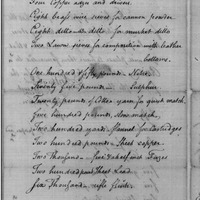 Four Copper adzes and drivers.
Eight brass wire sieves for cannon powder.
Eight ditto ditto for musket ditto
Two Lawn sieves for composition with leather
bottoms.
One hundred & fifty pounds Nitre.
Seventy five pounds Sulphur
Twenty pounds of Cotton yarn for quick match.
Five hundred pounds slow match,
Two hundred yards flannel for Cartridges.
Two hundred pounds Sheet copper.
Two Thousand five & half inch Fuzes
Two hundred pounds Sheet Lead.
Six Thousand rifle flints.